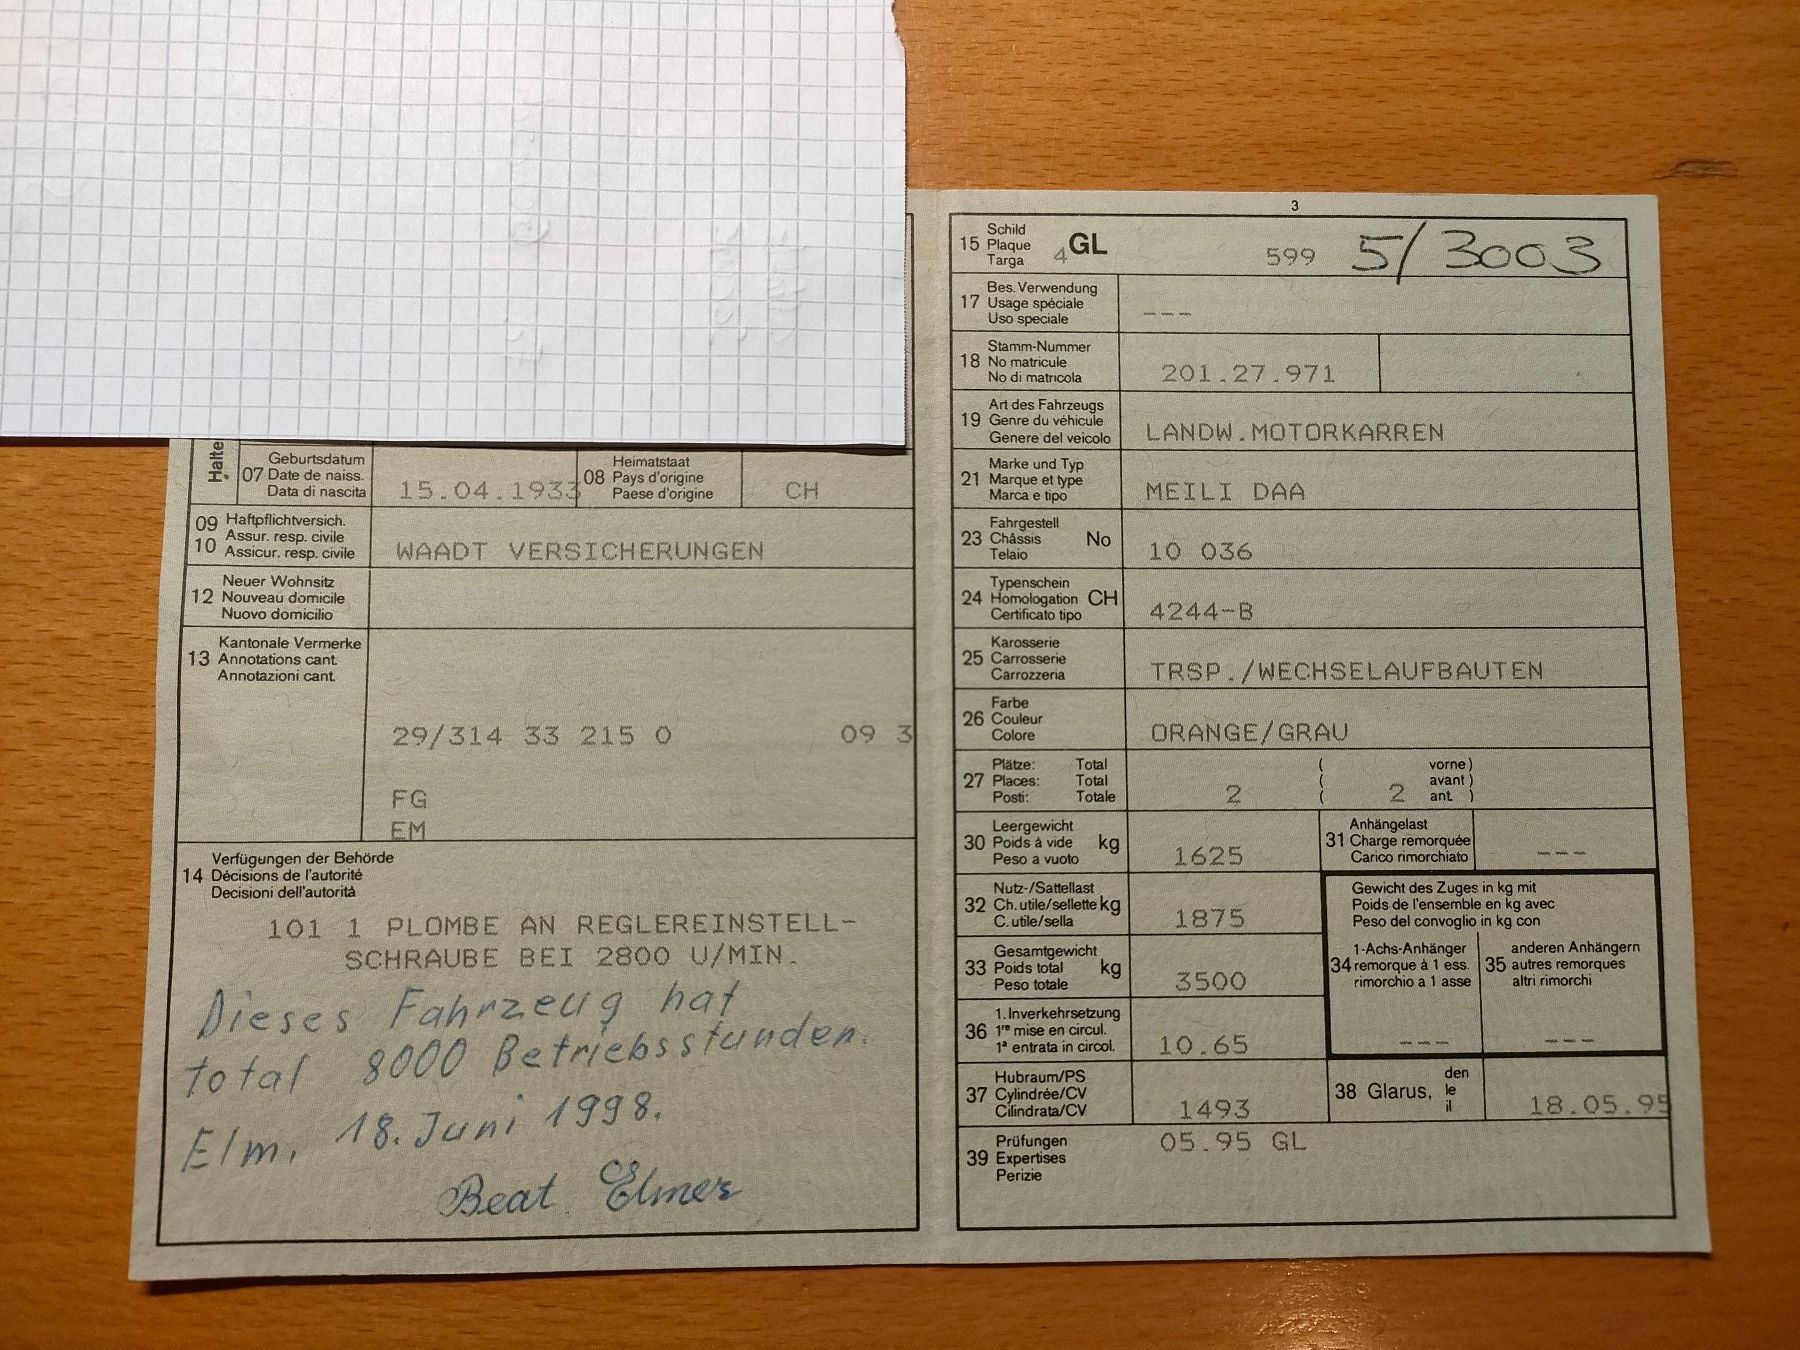 Halte
07 Geburtsdatum
Date de naiss.
Data di nascita
15.04.1933
08 Heimatstaat
Pays d'origine
Paese d'origine
CH
09 Haftpflichtversich.
Assur. resp. civile
10 Assicur. resp. civile
WAADT VERSICHERUNGEN
12 Neuer Wohnsitz
Nouveau domicile
Nuovo domicilio
13 Kantonale Vermerke
Annotations cant.
Annotazioni cant.
29/314 33 215 0 09 3
FG
EM
14 Verfügungen der Behörde
Décisions de l'autorité
Decisioni dell'autorità
101 1 PLOMBE AN REGLEREINSTELL-
SCHRAUBE BEI 2800 U/MIN.
Dieses Fahrzeug hat
total 8000 Betriebsstunden.
Elm, 18. Juni 1998.
Beat Elmer
3
15 Schild
Plaque
Targa
4 GL 599 5/3003
17 Bes. Verwendung
Usage spéciale
Uso speciale
---
18 Stamm-Nummer
No matricule
No di matricola
201.27.971
19 Art des Fahrzeugs
Genre du véhicule
Genere del veicolo
LANDW.MOTORKARREN
21 Marke und Typ
Marque et type
Marca e tipo
MEILI DAA
23 Fahrgestell
Châssis No
Telaio
10 036
24 Typenschein
Homologation CH
Certificato tipo
4244-B
25 Karosserie
Carrosserie
Carrozzeria
TRSP./WECHSELAUFBAUTEN
26 Farbe
Couleur
Colore
ORANGE/GRAU
27 Plätze: Total
Places: Total
Posti: Totale
2
( vorne )
( avant )
( 2 ant. )
30 Leergewicht
Poids à vide kg
Peso a vuoto
1625
31 Anhängelast
Charge remorquée
Carico rimorchiato
---
32 Nutz-/Sattellast
Ch. utile/sellette kg
C. utile/sella
1875
33 Gesamtgewicht
Poids total kg
Peso totale
3500
Gewicht des Zuges in kg mit
Poids de l'ensemble en kg avec
Peso del convoglio in kg con
34 1-Achs-Anhänger
remorque à 1 ess.
rimorchio a 1 asse
---
35 anderen Anhängern
autres remorques
altri rimorchi
---
36 1. Inverkehrsetzung
1re mise en circul.
1a entrata in circol.
10.65
37 Hubraum/PS
Cylindrée/CV
Cilindrata/CV
1493
38 Glarus, den
le
il
18.05.95
39 Prüfungen
Expertises
Perizie
05.95 GL